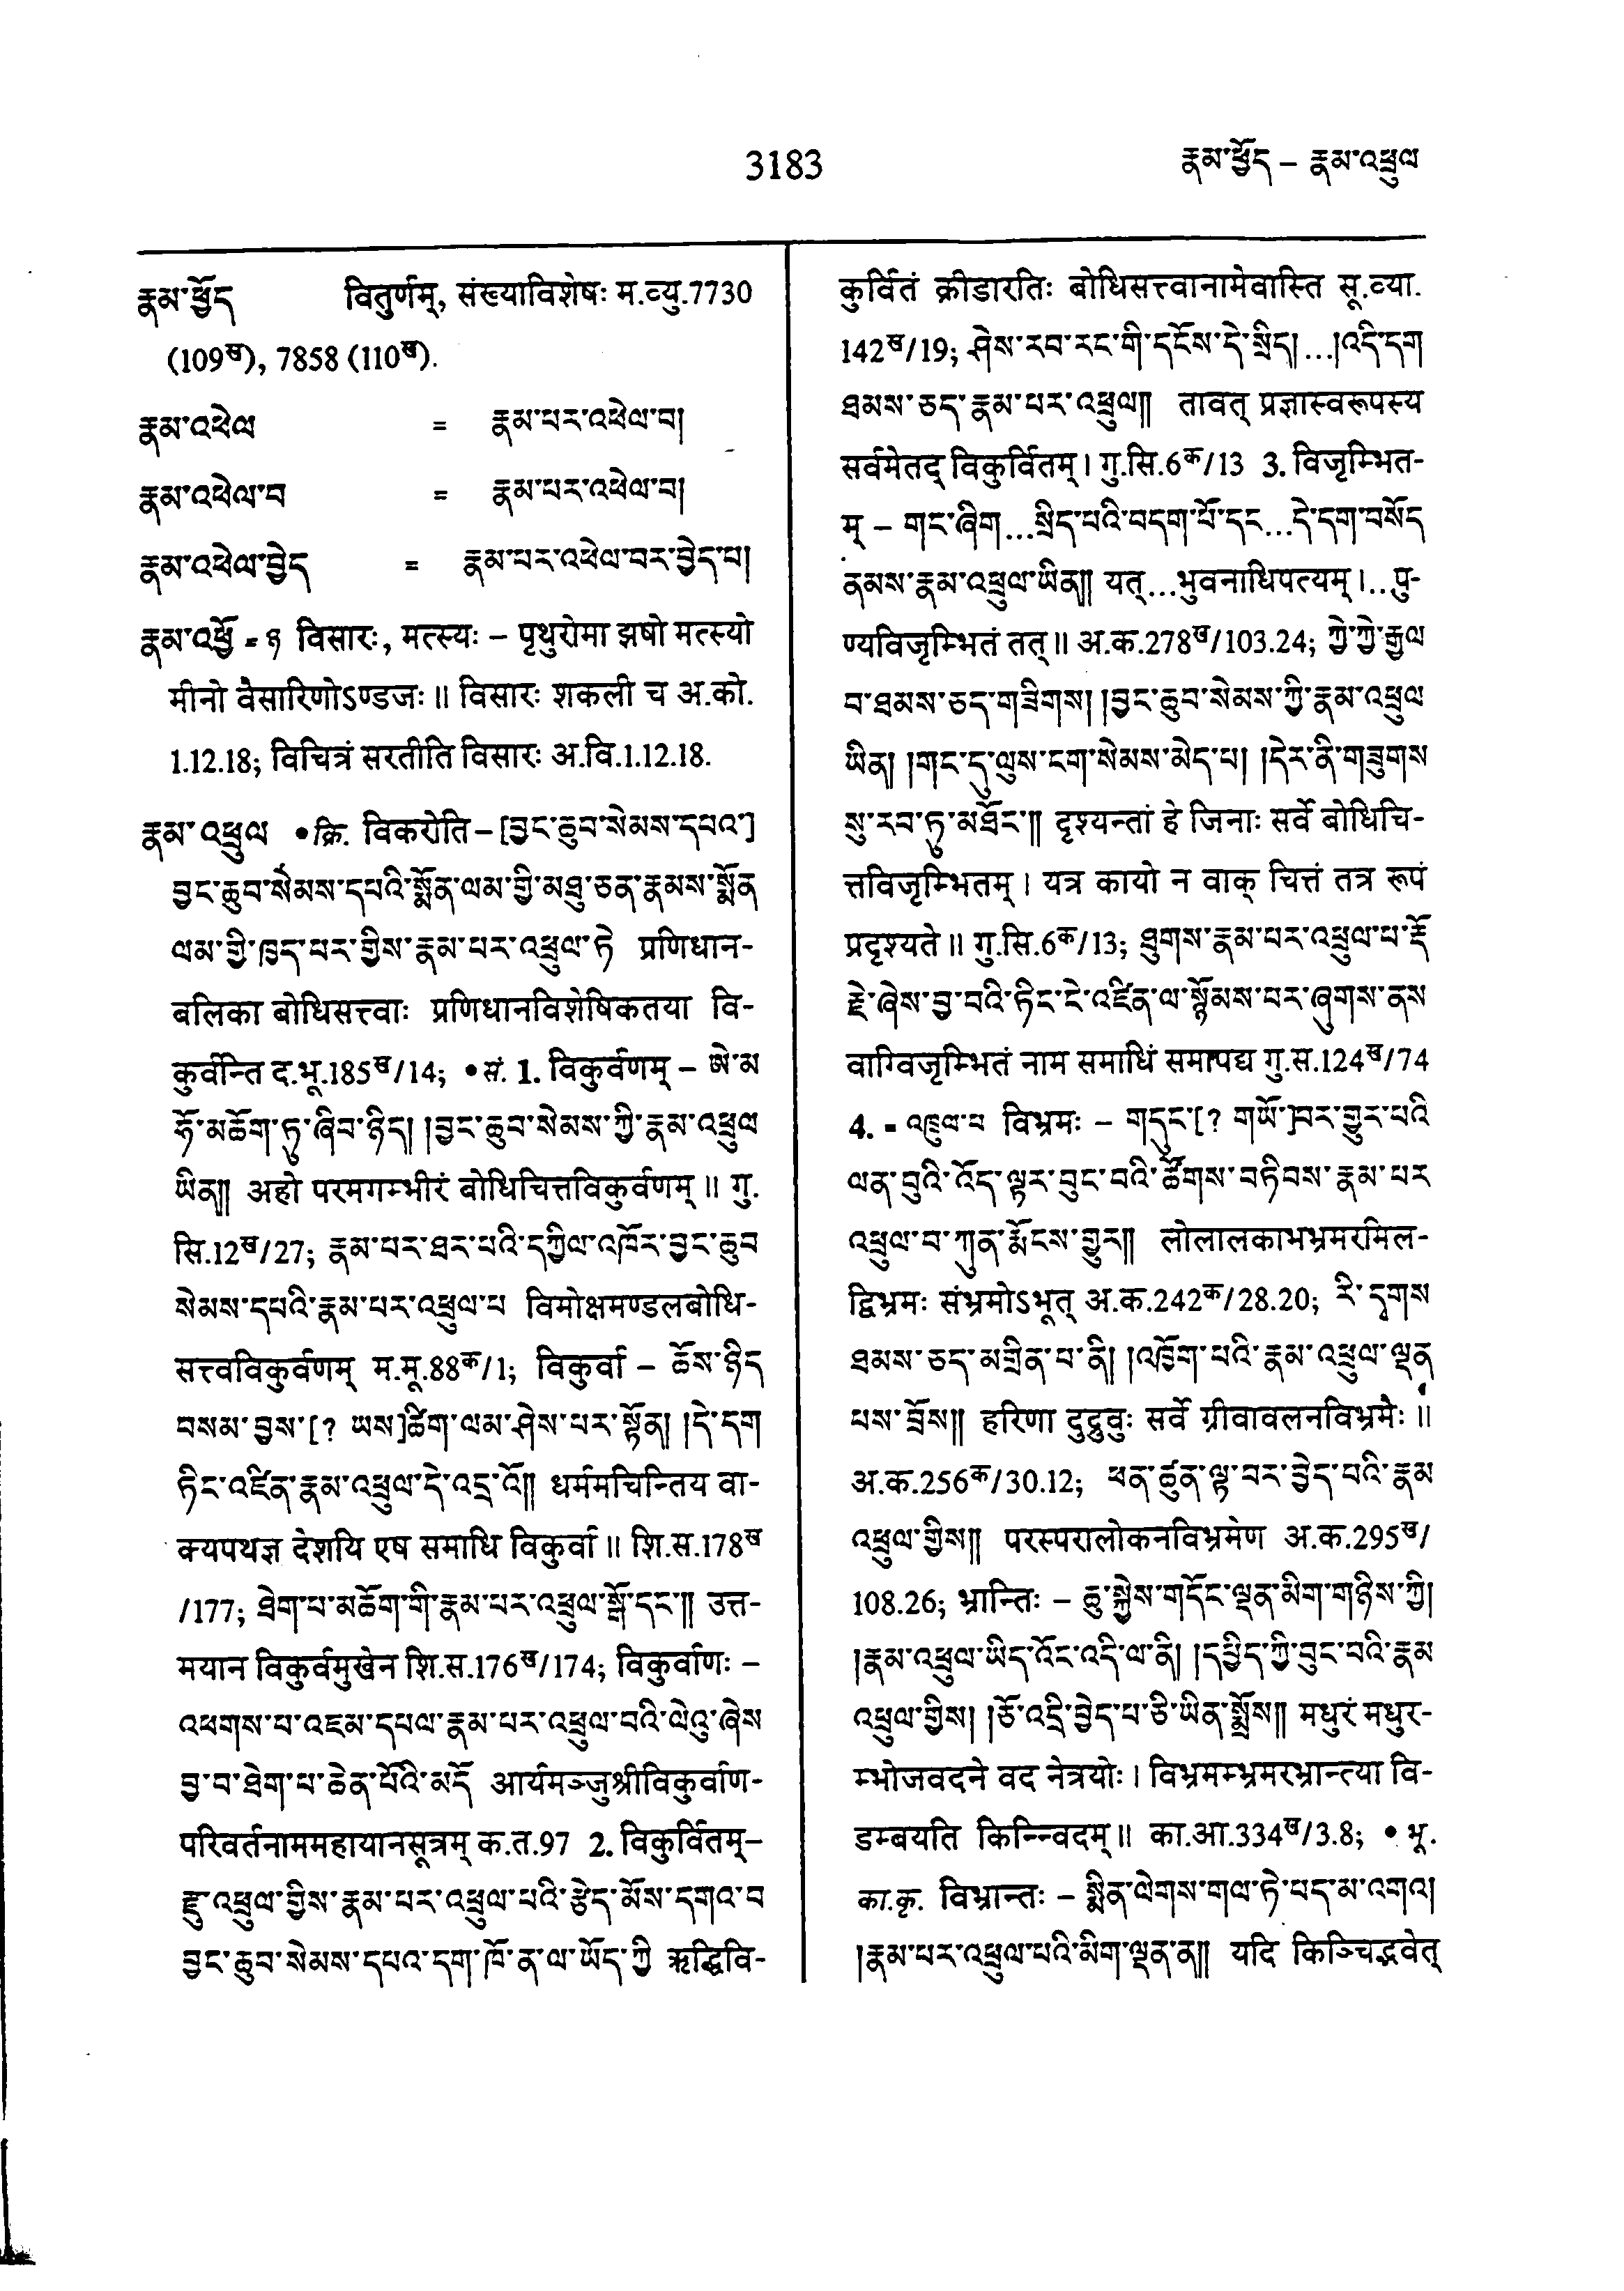 3183
རྣམ་ཕྱོད – རྣམ་འཕྲུལ
རྣམ་ཕྱོད वितुर्णम्, संख्याविशेषः म.व्यु.7730
(109ख), 7858 (110ख).
རྣམ་འཕེལ = རྣམ་པར་འཕེལ་བ།
རྣམ་འཕེལ་བ = རྣམ་པར་འཕེལ་བ།
རྣམ་འཕེལ་བྱེད = རྣམ་པར་འཕེལ་བར་བྱེད་པ།
རྣམ་འཕྱོ = ཉ विसारः, मत्स्यः – पृथुरोमा झषो मत्स्यो
मीनो वैसारिणोऽण्डजः॥ विसारः शकली च अ.को.
1.12.18; विचित्रं सरतीति विसारः अ.वि.1.12.18.
རྣམ་འཕྲུལ •क्रि. विकरोति – [བྱང་ཆུབ་སེམས་དཔའ་]
བྱང་ཆུབ་སེམས་དཔའི་སྨོན་ལམ་གྱི་མཐུ་ཅན་རྣམས་སྨོན
ལམ་གྱི་ཁྱད་པར་གྱིས་རྣམ་པར་འཕྲུལ་ཏེ प्रणिधान-
बलिका बोधिसत्त्वाः प्रणिधानविशेषिकतया वि-
कुर्वन्ति द.भू.185ख/14; •सं. 1. विकुर्वणम् – ཨེ་མ
ཧོ་མཆོག་ཏུ་ཞིབ་ཉིད། །བྱང་ཆུབ་སེམས་ཀྱི་རྣམ་འཕྲུལ
ཡིན།། अहो परमगम्भीरं बोधिचित्तविकुर्वणम्॥ गु.
सि.12ख/27; རྣམ་པར་ཐར་པའི་དཀྱིལ་འཁོར་བྱང་ཆུབ
སེམས་དཔའི་རྣམ་པར་འཕྲུལ་པ विमोक्षमण्डलबोधि-
सत्त्वविकुर्वणम् म.मू.88क/1; विकुर्वा – ཆོས་ཉིད
བསམ་བྱས་[? ཡས]ཚིག་ལམ་ཤེས་པར་སྟོན། །དེ་དག
ཏིང་འཛིན་རྣམ་འཕྲུལ་དེ་འདྲ་འོ།། धर्ममचिन्तिय वा-
क्यपथज्ञ देशयि एष समाधि विकुर्वा॥ शि.स.178ख
/177; ཐེག་པ་མཆོག་གི་རྣམ་པར་འཕྲུལ་སྒོ་དང་།། उत्त-
मयान विकुर्वमुखेन शि.स.176ख/174; विकुर्वाणः –
འཕགས་པ་འཇམ་དཔལ་རྣམ་པར་འཕྲུལ་བའི་ལེའུ་ཞེས
བྱ་བ་ཐེག་པ་ཆེན་པོའི་མདོ आर्यमञ्जुश्रीविकुर्वाण-
परिवर्तनाममहायानसूत्रम् क.त.97 2. विकुर्वितम्–
རྫུ་འཕྲུལ་གྱིས་རྣམ་པར་འཕྲུལ་པའི་རྩེད་མོས་དགའ་བ
བྱང་ཆུབ་སེམས་དཔའ་དག་ཁོ་ན་ལ་ཡོད་ཀྱི ऋद्धिवि-
कुर्वितं क्रीडारतिः बोधिसत्त्वानामेवास्ति सू.व्या.
142ख/19; ཤེས་རབ་རང་གི་དངོས་དེ་སྲིད།...།འདི་དག
ཐམས་ཅད་རྣམ་པར་འཕྲུལ།། तावत् प्रज्ञास्वरूपस्य
सर्वमेतद् विकुर्वितम्। गु.सि.6क/13 3. विजृम्भित-
म् – གང་ཞིག...སྲིད་པའི་བདག་པོ་དང...དེ་དག་བསོད
ནམས་རྣམ་འཕྲུལ་ཡིན།། यत्...भुवनाधिपत्यम्।...पु-
ण्यविजृम्भितं तत्॥ अ.क.278ख/103.24; ཀྱེ་ཀྱེ་རྒྱལ
བ་ཐམས་ཅད་གཟིགས། །བྱང་ཆུབ་སེམས་ཀྱི་རྣམ་འཕྲུལ
ཡིན། །གང་དུ་ལུས་ངག་སེམས་མེད་པ། །དེར་ནི་གཟུགས
སུ་རབ་ཏུ་མཐོང་།། दृश्यन्तां हे जिनाः सर्वे बोधिचि-
त्तविजृम्भितम्। यत्र कायो न वाक् चित्तं तत्र रूपं
प्रदृश्यते॥ गु.सि.6क/13; ཐུགས་རྣམ་པར་འཕྲུལ་པ་རྡོ
རྗེ་ཞེས་བྱ་བའི་ཏིང་ངེ་འཛིན་ལ་སྙོམས་པར་ཞུགས་ནས
वाग्विजृम्भितं नाम समाधिं समापद्य गु.स.124ख/74
4. = འཁྲུལ་པ विभ्रमः – གདུང་[? གཡོ་]བར་གྱུར་པའི
ལན་བུའི་འོད་ལྟར་བུང་བའི་ཚོགས་བཏིབས་རྣམ་པར
འཕྲུལ་བ་ཀུན་རྨོངས་གྱུར།། लोलालकाभभ्रमरमिल-
द्विभ्रमः संभ्रमोऽभूत् अ.क.242क/28.20; རི་དྭགས
ཐམས་ཅད་མགྲིན་པ་ནི། །འཁྱོག་པའི་རྣམ་འཕྲུལ་ལྡན
པས་བྲོས།། हरिणा दुद्रुवुः सर्वे ग्रीवावलनविभ्रमैः॥
अ.क.256क/30.12; ཕན་ཚུན་ལྟ་བར་བྱེད་པའི་རྣམ
འཕྲུལ་གྱིས།། परस्परालोकनविभ्रमेण अ.क.295ख/
108.26; भ्रान्तिः – ཆུ་སྐྱེས་གདོང་ལྡན་མིག་གཉིས་ཀྱི།
།རྣམ་འཕྲུལ་ཡིད་འོང་འདི་ལ་ནི། །དཔྱིད་ཀྱི་བུང་བའི་རྣམ
འཕྲུལ་གྱིས། །ཅོ་འདྲི་བྱེད་པ་ཅི་ཡིན་སྨྲོས།། मधुरं मधुर-
म्भोजवदने वद नेत्रयोः। विभ्रमम्भ्रमरभ्रान्त्या वि-
डम्बयति किन्न्विदम्॥ का.आ.334ख/3.8; • भू.
का.कृ. विभ्रान्तः – སྨིན་ལེགས་གལ་ཏེ་པད་མ་འགའ།
།རྣམ་པར་འཕྲུལ་པའི་མིག་ལྡན་ན།། यदि किञ्चिद्भवेत्